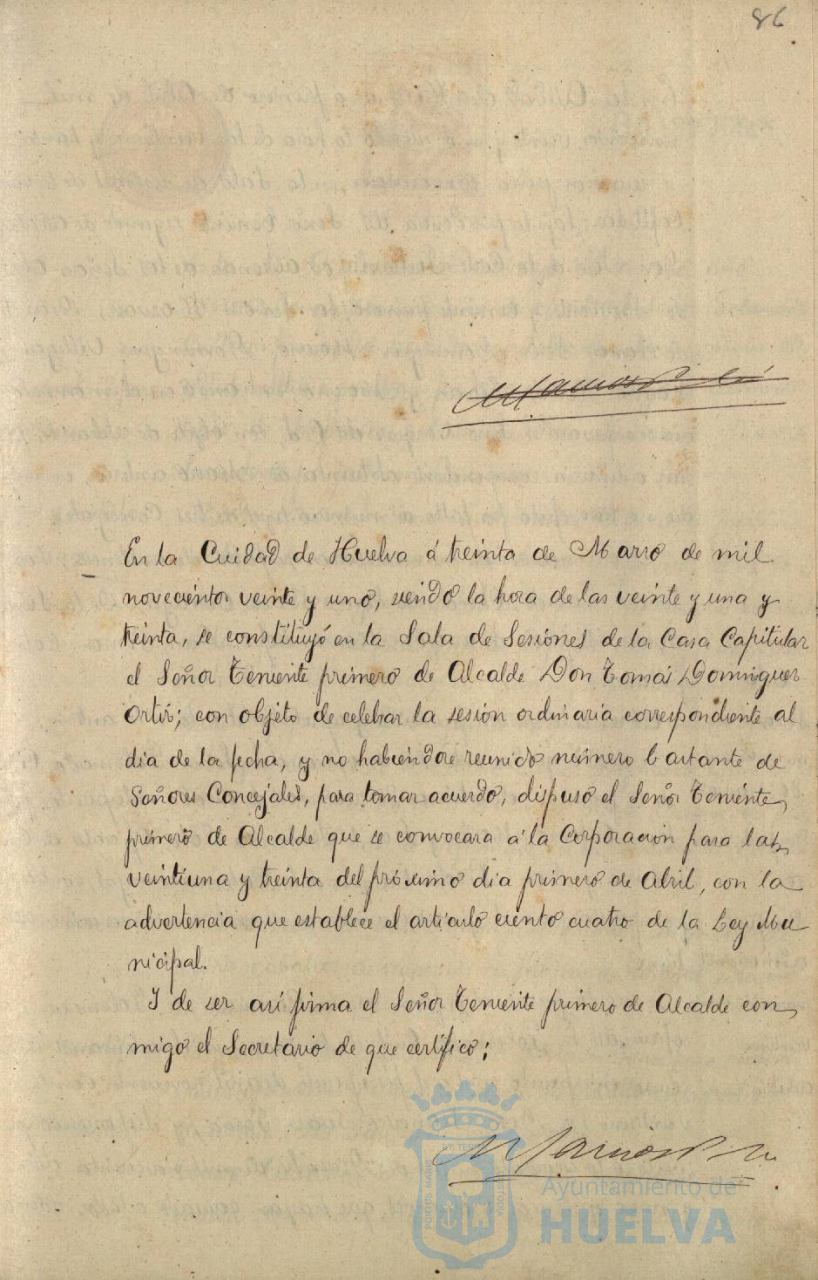 86
En la Cuidad de Huelva á treinta de Marzo de mil
novecientos veinte y uno, siendo la hora de las veinte y una y
treinta, se constituyó en la Sala de Sesiones de la Casa Capitular
el Señor Teniente primero de Alcalde Don Tomás Dominguez
Ortiz; con objeto de celebar la sesión ordinaria correspondiente al
dia de la fecha, y no habiendose reunido número bastante de
Señores Concejales, para tomar acuerdo, dispuso el Señor Teniente
primero de Alcalde que se convocara á la Corporación para las
veintiuna y treinta del próximo dia primero de Abril, con la
advertencia que establece el artículo ciento cuatro de la Ley Mu
nicipal.
Y de ser así firma el Señor Teniente primero de Alcalde con
migo el Secretario de que certifico;
Ayuntamiento de
HUELVA